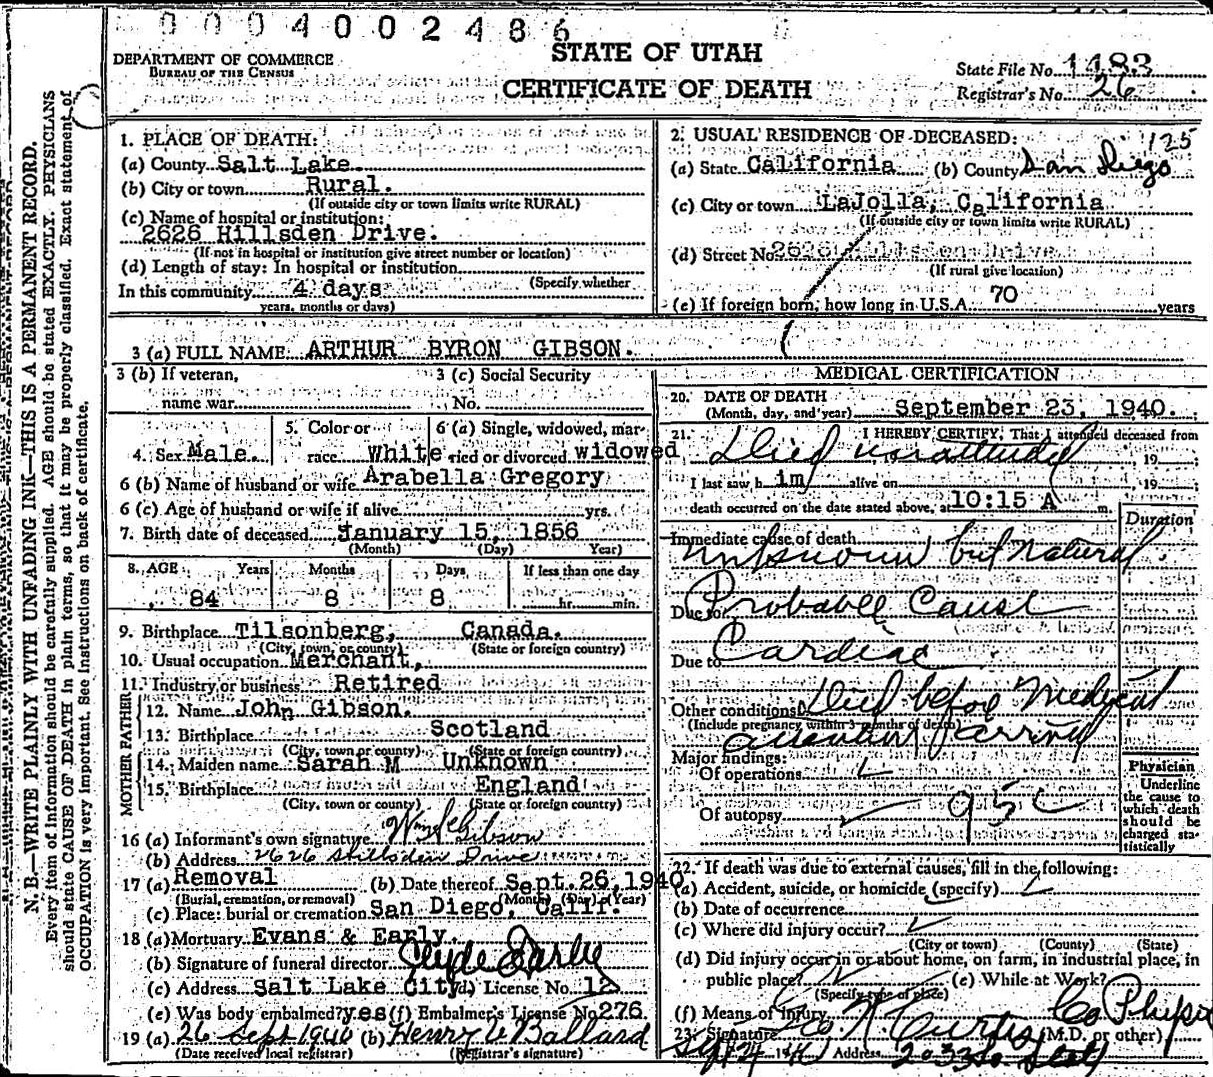 0004002486
DEPARTMENT OF COMMERCE
BUREAU OF THE CENSUS
STATE OF UTAH
CERTIFICATE OF DEATH
State File No. 1483
Registrar's No. 26
N. B.—WRITE PLAINLY WITH UNFADING INK—THIS IS A PERMANENT RECORD.
Every item of information should be carefully supplied. AGE should be stated EXACTLY. PHYSICIANS
should state CAUSE OF DEATH in plain terms, so that it may be properly classified. Exact statement of
OCCUPATION is very important. See instructions on back of certificate.
1. PLACE OF DEATH:
(a) County Salt Lake
(b) City or town Rural.
(If outside city or town limits write RURAL)
(c) Name of hospital or institution:
2626 Hillsden Drive.
(If not in hospital or institution give street number or location)
(d) Length of stay: In hospital or institution
(Specify whether
In this community 4 days
years, months or days)
2. USUAL RESIDENCE OF DECEASED: 125
(a) State California (b) County San Diego
(c) City or town LaJolla, California
(If outside city or town limits write RURAL)
(d) Street No. 2626 Hillsden Drive
(If rural give location)
(e) If foreign born, how long in U.S.A. 70 years
3 (a) FULL NAME ARTHUR BYRON GIBSON.
3 (b) If veteran,
name war
3 (c) Social Security
No.
4. Sex Male.
5. Color or
race White
6 (a) Single, widowed, mar-
ried or divorced widowed
6 (b) Name of husband or wife Arabella Gregory
6 (c) Age of husband or wife if alive yrs.
7. Birth date of deceased January 15, 1856
(Month) (Day) Year)
8. AGE Years Months Days If less than one day
84 8 8 hr. min.
9. Birthplace Tilsonberg, Canada.
(City, town, or county) (State or foreign country)
10. Usual occupation Merchant,
11. Industry or business Retired
FATHER
12. Name John Gibson.
13. Birthplace Scotland
(City, town or county) (State or foreign country)
MOTHER
14. Maiden name Sarah M Unknown
15. Birthplace England
(City, town or county) (State or foreign country)
16 (a) Informant's own signature Gibson
(b) Address 2626 Hillsden Drive
17 (a) Removal (b) Date thereof Sept. 26, 1940
(Burial, cremation, or removal) (Month) (Day) (Year)
(c) Place: burial or cremation San Diego, Calif.
18 (a) Mortuary Evans & Early.
(b) Signature of funeral director Clyde Early
(c) Address Salt Lake City (d) License No. 12
(e) Was body embalmed? yes (f) Embalmer's License No 276
19 (a) 26 Sept 1940 (b) Henry Ballard
(Date received local registrar) (Registrar's signature)
MEDICAL CERTIFICATION
20. DATE OF DEATH
(Month, day, and year) September 23, 1940.
21. I HEREBY CERTIFY, That I attended deceased from
Died unattended , 19 ;
I last saw h im alive on , 19 ;
death occurred on the date stated above, at 10:15 A m.
Duration
Immediate cause of death
Unknown but natural.
Due to Probable Cause
Due to Cardiac
Other conditions Died before Medical
(Include pregnancy within 3 months of death)
Major findings:
Of operations
Of autopsy 95c
Physician
Underline
the cause to
which death
should be
charged sta-
tistically
22. If death was due to external causes, fill in the following:
(a) Accident, suicide, or homicide (specify)
(b) Date of occurrence
(c) Where did injury occur?
(City or town) (County) (State)
(d) Did injury occur in or about home, on farm, in industrial place, in
public place? (e) While at Work?
(Specify type of place)
(f) Means of Injury
23. Signature Curtis (M.D. or other)
Address